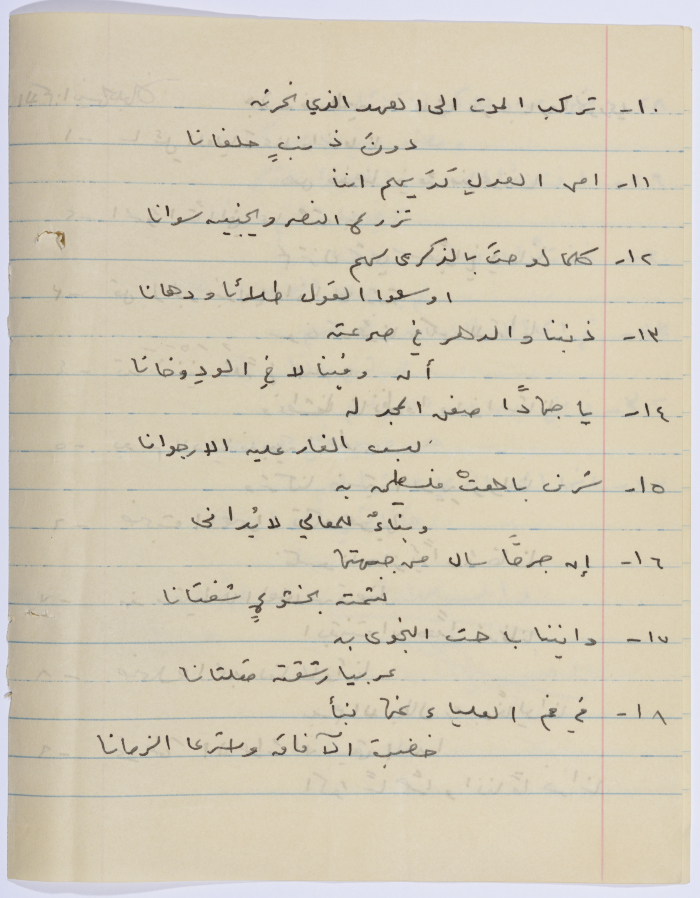 ١٠- تركب الموت الى العهد الذي نحرته
دونَ ذنبٍ حلفانا
١١- امن العدل لديهم اننا
نزرع النصر ويجنيه سوانا
١٢- كلما لوحتَ بالذكرى لهم
اوسعوا القول طلاءً ودهانا
١٣- ذنبنا والدهر في صرعته
أن وفينا لاخي الودِ وخانا
١٤- يا جهادًا صفق المجد له
لبس الغار عليه الارجوانا
١٥- شرف باهت فلسطين به
وبناءٌ للمعالي لا يُدانى
١٦- إن جرحًا سال من جبهتها
لثمته بخشوعٍ شفتانا
١٧- وانينا باحت النجوى به
عربيا رشفته مقلتانا
١٨- في فم العلياء عنها نبأ
خضبت الآفاق والزمانا